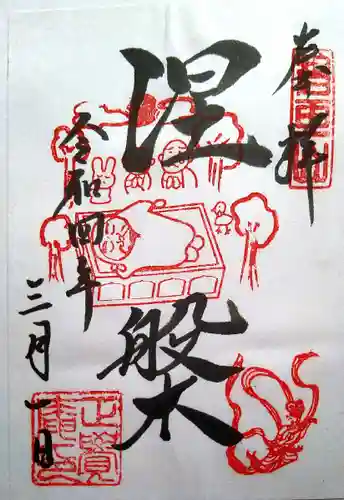 奉拝
涅槃
令和四年
三月一日